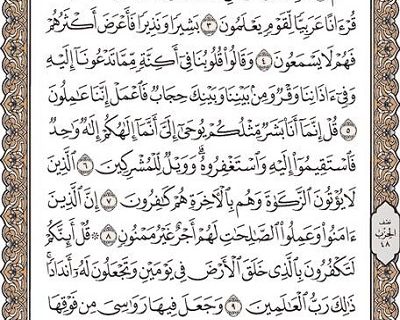 قُرْءَانًا عَرَبِيًّا لِّقَوْمٍ يَعْلَمُونَ ٣ بَشِيرًا وَنَذِيرًا فَأَعْرَضَ أَكْثَرُهُمْ
فَهُمْ لَا يَسْمَعُونَ ٤ وَقَالُوا۟ قُلُوبُنَا فِىٓ أَكِنَّةٍ مِّمَّا تَدْعُونَآ إِلَيْهِ
وَفِىٓ ءَاذَانِنَا وَقْرٌ وَمِنۢ بَيْنِنَا وَبَيْنِكَ حِجَابٌ فَٱعْمَلْ إِنَّنَا عَٰمِلُونَ
٥ قُلْ إِنَّمَآ أَنَا۠ بَشَرٌ مِّثْلُكُمْ يُوحَىٰٓ إِلَىَّ أَنَّمَآ إِلَٰهُكُمْ إِلَٰهٌ وَٰحِدٌ
فَٱسْتَقِيمُوٓا۟ إِلَيْهِ وَٱسْتَغْفِرُوهُ ۗ وَوَيْلٌ لِّلْمُشْرِكِينَ ٦ ٱلَّذِينَ
لَا يُؤْتُونَ ٱلزَّكَوٰةَ وَهُم بِٱلْءَاخِرَةِ هُمْ كَٰفِرُونَ ٧ إِنَّ ٱلَّذِينَ
ءَامَنُوا۟ وَعَمِلُوا۟ ٱلصَّٰلِحَٰتِ لَهُمْ أَجْرٌ غَيْرُ مَمْنُونٍ ٨ ۞ قُلْ أَئِنَّكُمْ
لَتَكْفُرُونَ بِٱلَّذِى خَلَقَ ٱلْأَرْضَ فِى يَوْمَيْنِ وَتَجْعَلُونَ لَهُۥٓ أَندَادًا ۚ
ذَٰلِكَ رَبُّ ٱلْعَٰلَمِينَ ٩ وَجَعَلَ فِيهَا رَوَٰسِىَ مِن فَوْقِهَا
نصف
الحزب
٤٨